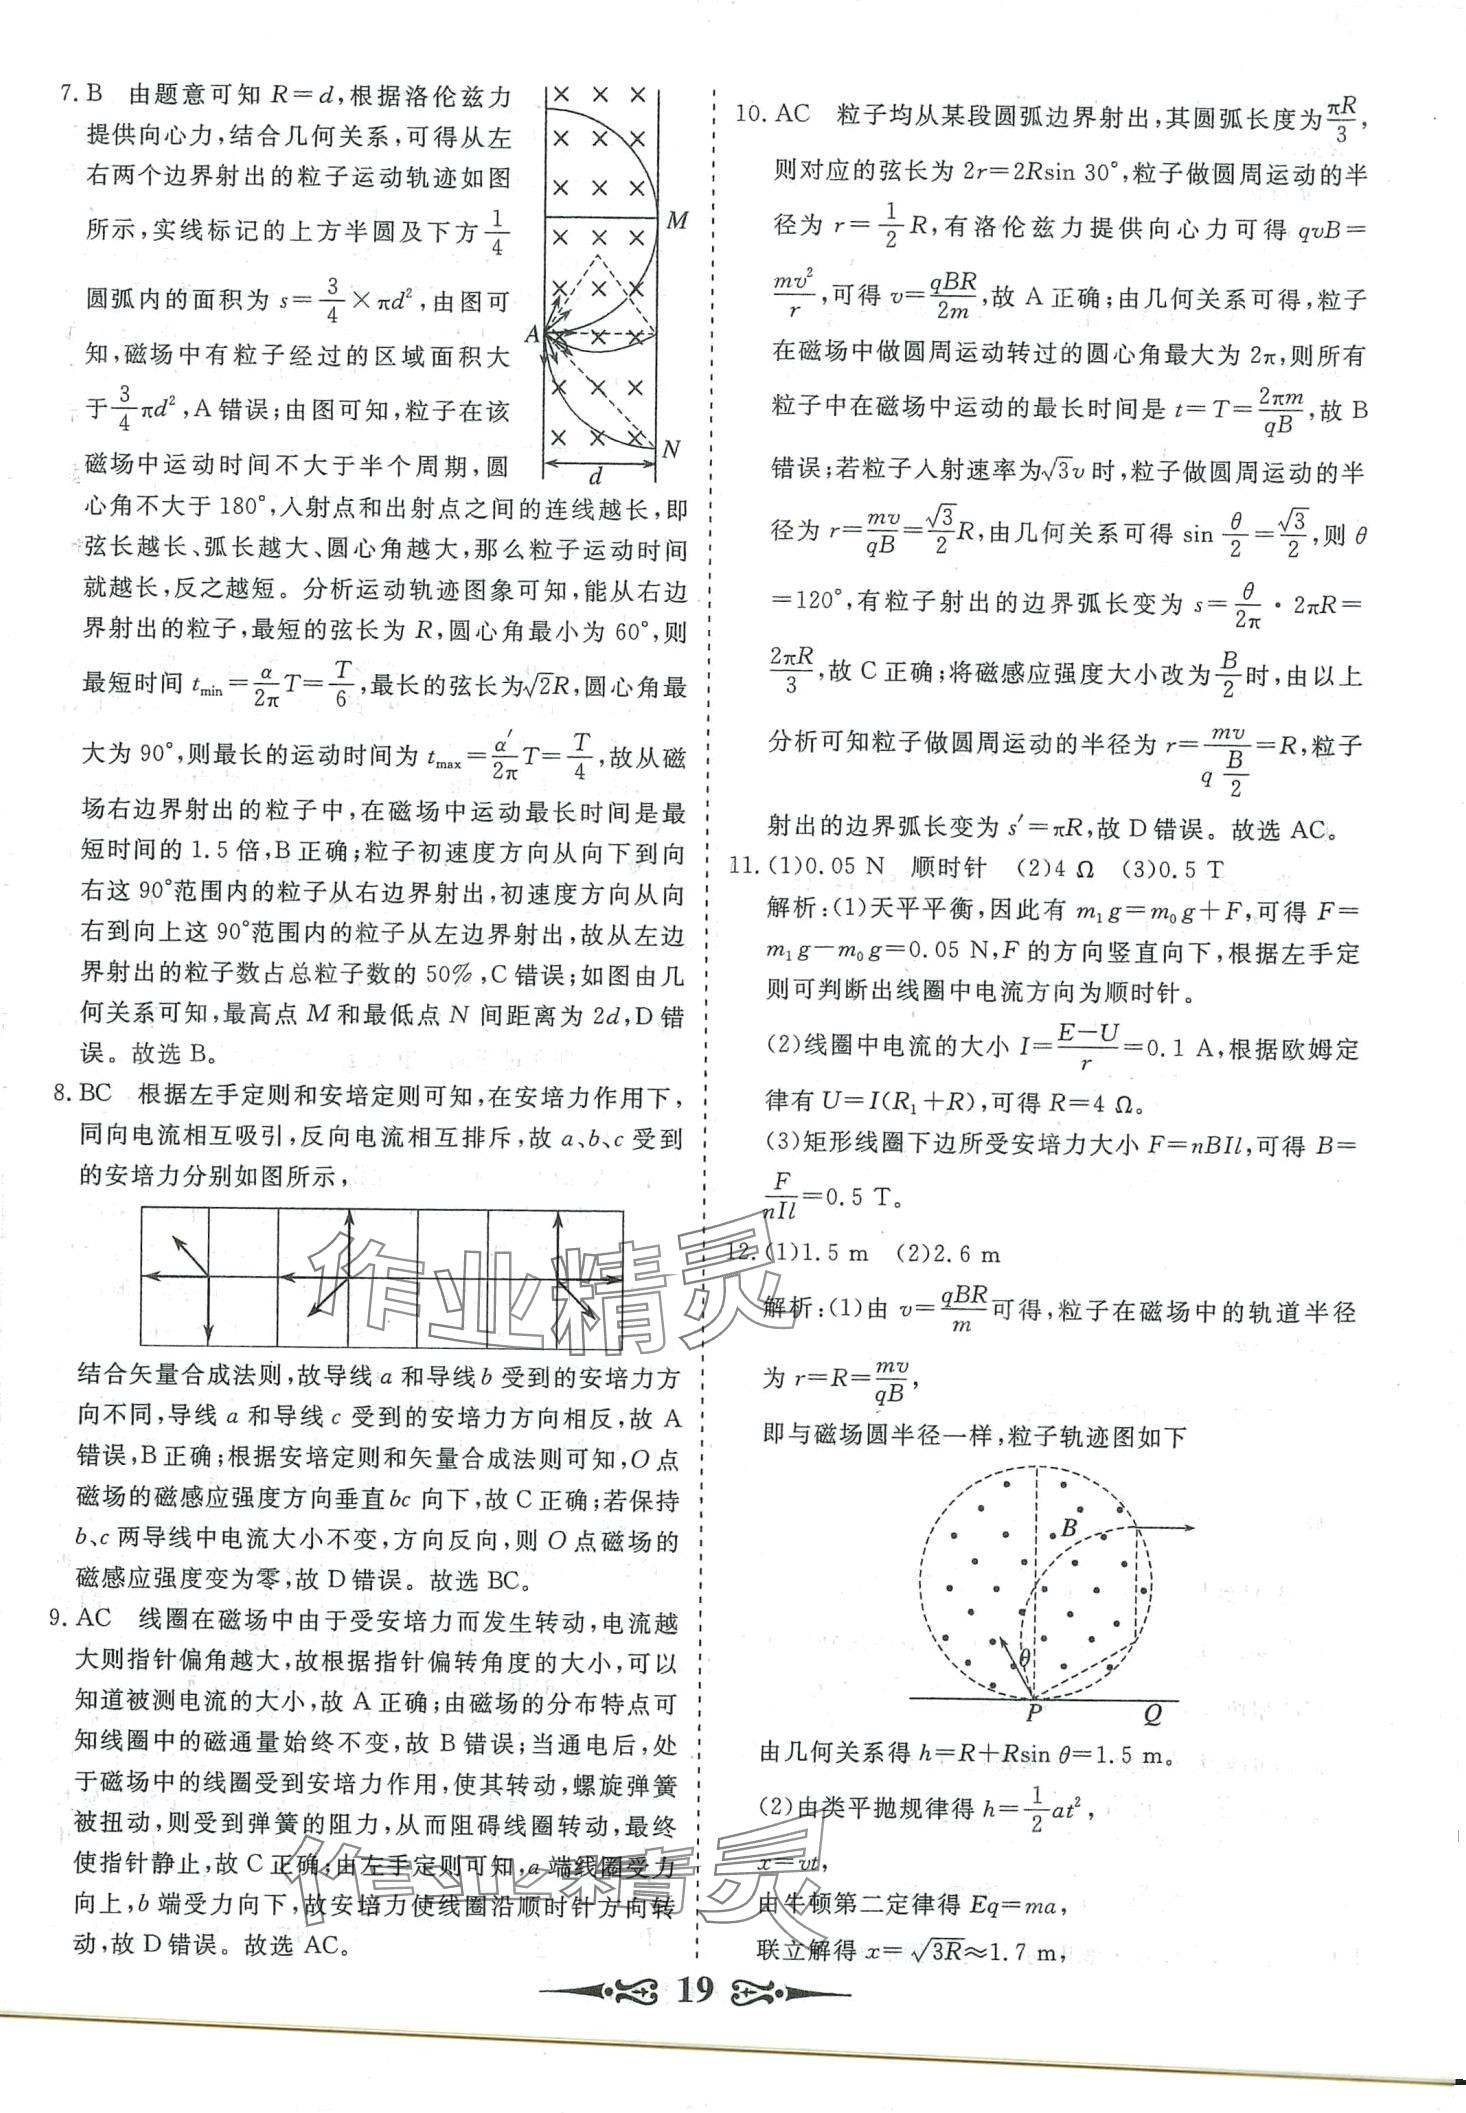 7. B　由题意可知 R=d,根据洛伦兹力
提供向心力,结合几何关系,可得从左
右两个边界射出的粒子运动轨迹如图
所示,实线标记的上方半圆及下方1/4
圆弧内的面积为 s=3/4×πd²,由图可
知,磁场中有粒子经过的区域面积大
于3/4πd²,A错误;由图可知,粒子在该
磁场中运动时间不大于半个周期,圆
心角不大于180°,入射点和出射点之间的连线越长,即
弦长越长、弧长越大、圆心角越大,那么粒子运动时间
就越长,反之越短。分析运动轨迹图象可知,能从右边
界射出的粒子,最短的弦长为 R,圆心角最小为 60°,则
最短时间 tmin=α/2π T=T/6,最长的弦长为√2R,圆心角最
大为 90°,则最长的运动时间为 tmax=α′/2π T=T/4,故从磁
场右边界射出的粒子中,在磁场中运动最长时间是最
短时间的 1.5 倍,B正确;粒子初速度方向从向下到向
右这 90°范围内的粒子从右边界射出,初速度方向从向
右到向上这 90°范围内的粒子从左边界射出,故从左边
界射出的粒子数占总粒子数的 50%,C错误;如图由几
何关系可知,最高点 M 和最低点 N 间距离为 2d,D错
误。故选 B。
A
M
N
d
8. BC　根据左手定则和安培定则可知,在安培力作用下,
同向电流相互吸引,反向电流相互排斥,故 a、b、c 受到
的安培力分别如图所示,
结合矢量合成法则,故导线 a 和导线 b 受到的安培力方
向不同,导线 a 和导线 c 受到的安培力方向相反,故 A
错误,B正确;根据安培定则和矢量合成法则可知,O点
磁场的磁感应强度方向垂直 bc 向下,故 C 正确;若保持
b、c 两导线中电流大小不变,方向反向,则 O 点磁场的
磁感应强度变为零,故 D 错误。故选 BC。
9. AC　线圈在磁场中由于受安培力而发生转动,电流越
大则指针偏角越大,故根据指针偏转角度的大小,可以
知道被测电流的大小,故 A 正确;由磁场的分布特点可
知线圈中的磁通量始终不变,故 B 错误;当通电后,处
于磁场中的线圈受到安培力作用,使其转动,螺旋弹簧
被扭动,则受到弹簧的阻力,从而阻碍线圈转动,最终
使指针静止,故 C 正确;由左手定则可知,a 端线圈受力
向上,b 端受力向下,故安培力使线圈沿顺时针方向转
动,故 D 错误。故选 AC。
10. AC　粒子均从某段圆弧边界射出,其圆弧长度为πR/3,
则对应的弦长为 2r=2Rsin 30°,粒子做圆周运动的半
径为 r=1/2 R,有洛伦兹力提供向心力可得 qvB=
mv²/r,可得 v=qBR/2m,故 A 正确;由几何关系可得,粒子
在磁场中做圆周运动转过的圆心角最大为 2π,则所有
粒子中在磁场中运动的最长时间是 t=T=2πm/qB,故 B
错误;若粒子入射速率为√3v 时,粒子做圆周运动的半
径为 r=mv/qB=√3/2 R,由几何关系可得 sin θ/2=√3/2,则 θ
=120°,有粒子射出的边界弧长变为 s=θ/2π·2πR=
2πR/3,故 C 正确;将磁感应强度大小改为B/2时,由以上
分析可知粒子做圆周运动的半径为 r=mv/(q B/2)=R,粒子
射出的边界弧长变为 s′=πR,故 D 错误。故选 AC。
11. (1)0.05 N　顺时针　(2)4 Ω　(3)0.5 T
解析:(1)天平平衡,因此有 m₁g=m₀g+F,可得 F=
m₁g-m₀g=0.05 N,F 的方向竖直向下,根据左手定
则可判断出线圈中电流方向为顺时针。
(2)线圈中电流的大小 I=E-U/r=0.1 A,根据欧姆定
律有 U=I(R₁+R),可得 R=4 Ω。
(3)矩形线圈下边所受安培力大小 F=nBIl,可得 B=
F/nIl=0.5 T。
12. (1)1.5 m　(2)2.6 m
解析:(1)由 v=qBR/m可得,粒子在磁场中的轨道半径
为 r=R=mv/qB,
即与磁场圆半径一样,粒子轨迹图如下
B
θ
P
Q
由几何关系得 h=R+Rsin θ=1.5 m。
(2)由类平抛规律得 h=1/2 at²,
x=vt,
由牛顿第二定律得 Eq=ma,
联立解得 x=√3R≈1.7 m,
作业精灵
作业精灵
19